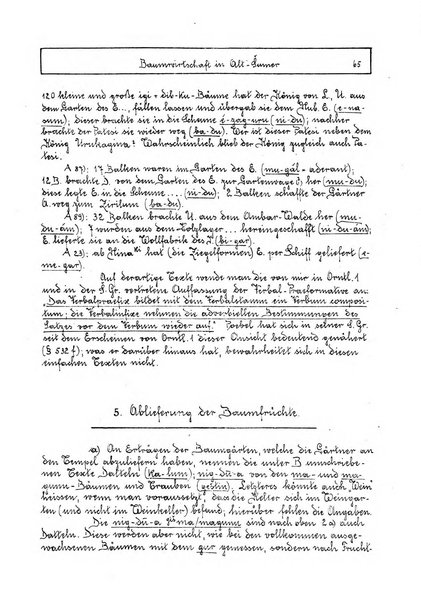 Baumwirtschaft in Alt-Šumer 65
120 kleine und große igi-dib-ku-Bäume hat der König von L., U. aus
dem Garten des E..., fällen lassen und übergab sie dem Nub. E. (e-na-
sum); dieser brachte sie in die Scheune é-zag-uru (ni-du); nachher
brachte der Patesi sie wieder weg (ba-du). Wer ist dieser Patesi neben dem
König Urukagina? Wahrscheinlich blieb der König zugleich auch Pa-
tesi.
A 87): 17 Balken waren im Garten des E. (mu-gál = aderant);
12 B. brachte D. von dem Garten des E. zur Gartenwage (?) her (mu-du);
diese legte E. in die Scheune .... (ni-du); 2 Balken schaffte der Gärtner
A. weg zum Zirilum (ba-du).
A 89): 32 Balken brachte U. aus dem Ambar-Walde her (mu-
du-ám); 7 wurden aus dem Holzlager ... hereingeschafft (ni-du-ám);
E. lieferte sie an die Wollfabrik des (bi-gar).
A 23): ab Nina hat (die Ziegelformen) E. per Schiff geliefert (e-
me-gar).
Auf derartige Texte wende man die von mir in Orntl. 1
und in der Š. Gr. vertretene Auffassung der Verbal-Praeformative an:
„Das Verbalpraefix bildet mit dem Verbalstamm ein Verbum composi-
tum; die Verbalinfixe nehmen die adverbiellen Bestimmungen des
Satzes vor dem Verbum wieder auf." Poebel hat sich in seiner Š. Gr.
seit dem Erscheinen von Orntl. 1 dieser Ansicht bedeutend genähert
(§ 532 f); was er darüber hinaus hat, bewahrheitet sich in diesen
einfachen Texten nicht.
5. Ablieferung der Baumfrüchte.
a) An Erträgen der Baumgärten, welche die Gärtner an
den Tempel abzuliefern haben, nennen die unter B umschriebe-
nen Texte Datteln (ka-lum); nig-dú-a von den ma- und ma-
gunu-Bäumen und Trauben (geštin). Letzteres könnte auch Wein
heissen, wenn man voraussetzt, daß die Kelter sich im Weingar-
ten (und nicht im Weinkeller) befand; hierüber fehlen die Angaben.
Die nig-dú-a ma/magunu sind nach oben 2 a) auch
Datteln. Diese werden aber nicht, wie bei den vollkommen ausge-
wachsenen Bäumen mit dem gur gemessen, sondern nach Frucht-